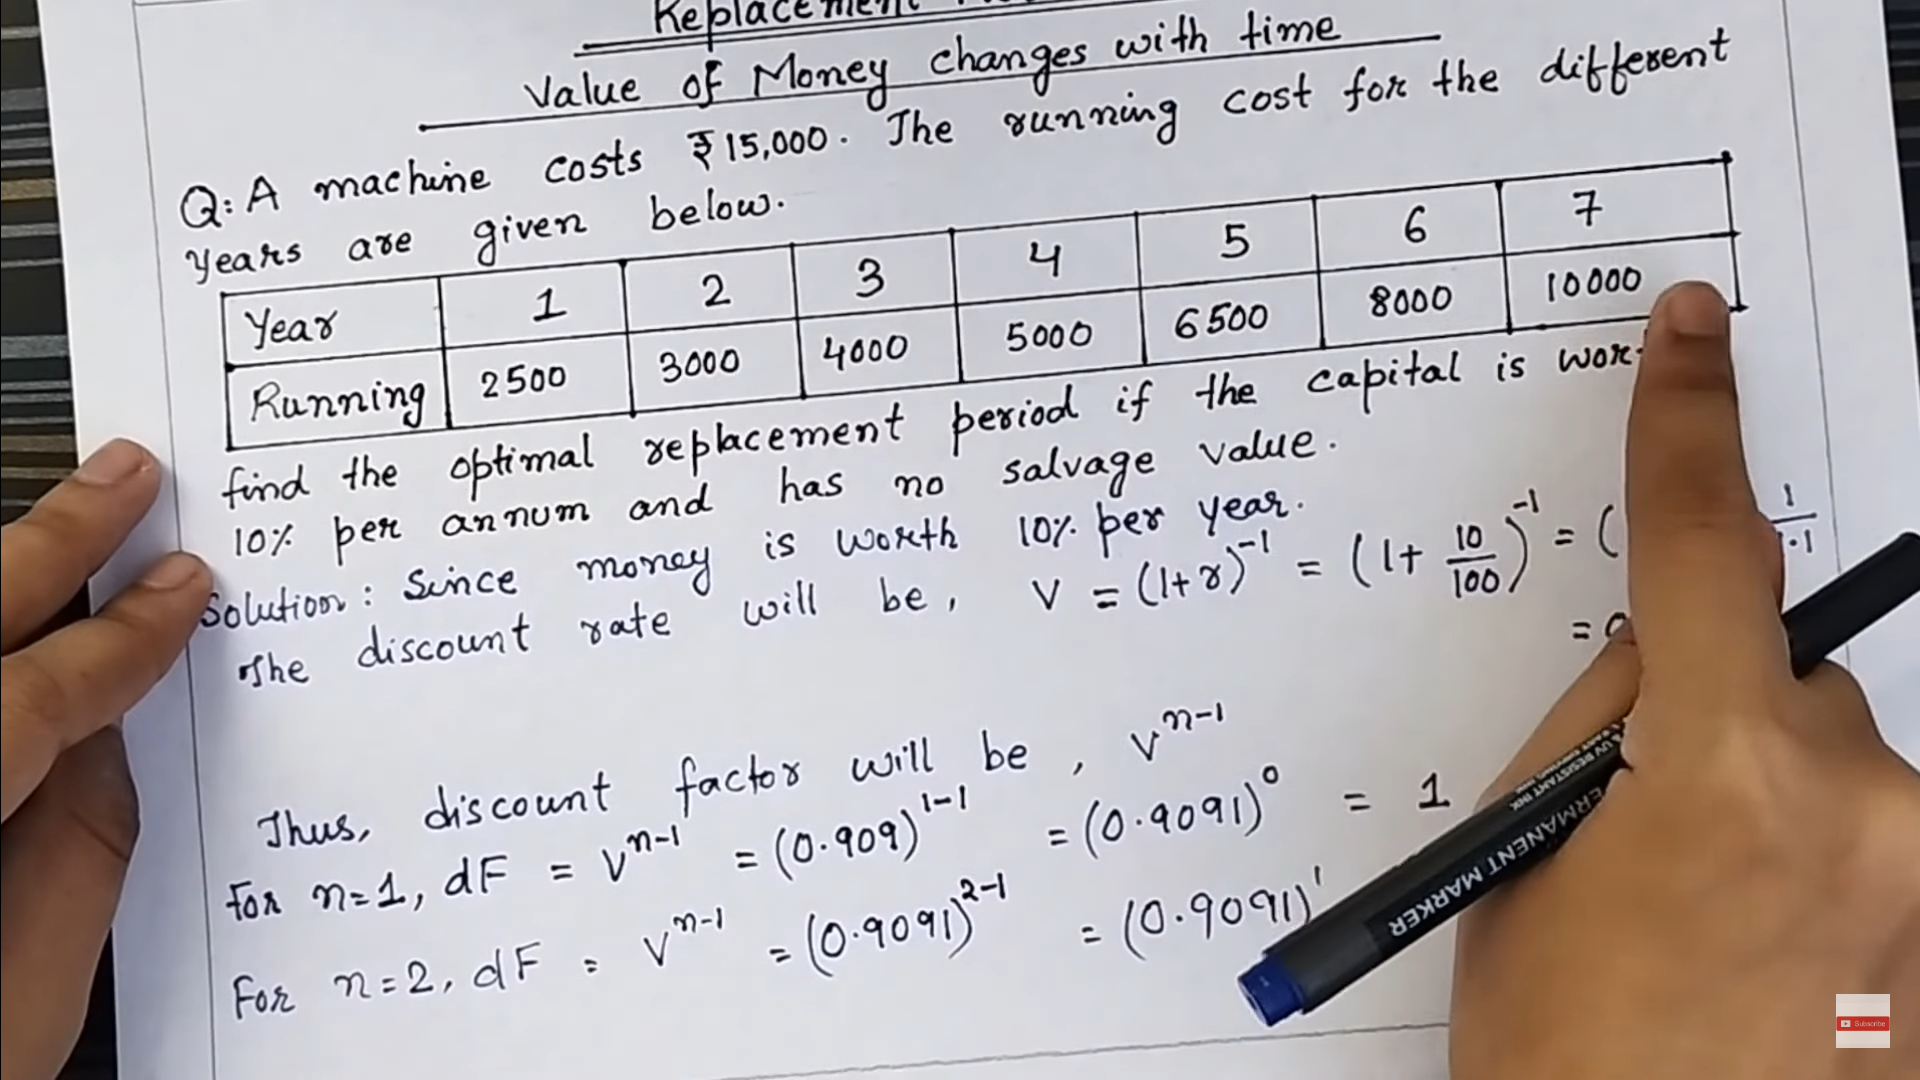 Replacement
Value of Money changes with time
Q: A machine costs ₹15,000. The running cost for the different
years are given below.
Year 1 2 3 4 5 6 7
Running 2500 3000 4000 5000 6500 8000 10000
find the optimal replacement period if the capital is
10% per annum and has no salvage value.
Solution: Since money is worth 10% per year.
The discount rate will be, V = (1+r)^-1 = (1+ 10/100)^-1 = (
=
Thus, discount factor will be, V^n-1
For n=1, dF = V^n-1 = (0.909)^1-1 = (0.9091)^0 = 1
For n=2, dF = V^n-1 = (0.9091)^2-1 = (0.9091)^1
PERMANENT MARKER
Subscribe